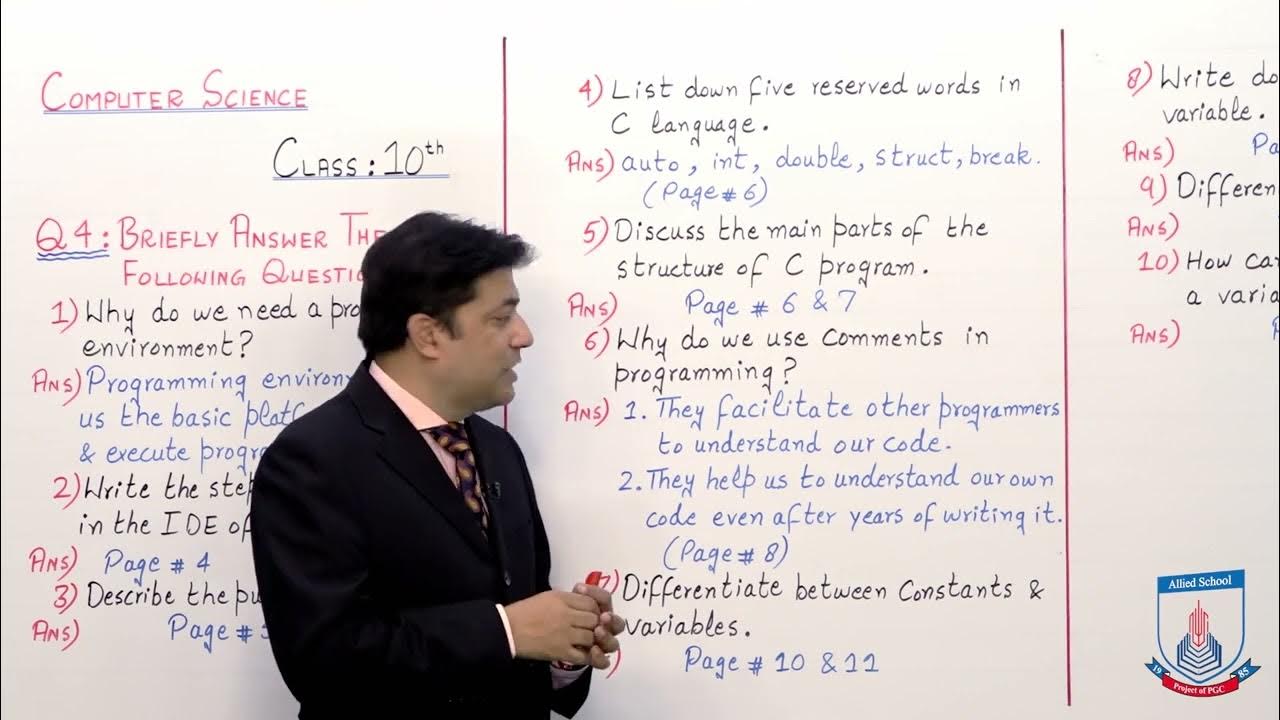 COMPUTER SCIENCE
CLASS: 10th
Q4: BRIEFLY ANSWER THE
FOLLOWING
1) Why do we need a
environment?
Ans) Programming
us the basic
& execute
2) Write the
in the IDE of
Ans) Page # 4
3) Describe the
Ans) Page #
4) List down five reserved words in
C language.
Ans) auto, int, double, struct, break.
(Page # 6)
5) Discuss the main parts of the
structure of C program.
Ans) Page # 6 & 7
6) Why do we use comments in
programming?
Ans) 1. They facilitate other programmers
to understand our code.
2. They help us to understand our own
code even after years of writing it.
(Page # 8)
7) Differentiate between Constants &
variables.
Page # 10 & 11
8) Write
variable.
Ans)
9)
Ans)
10) How
a
Ans)
Allied School
19 85
Project of PGC